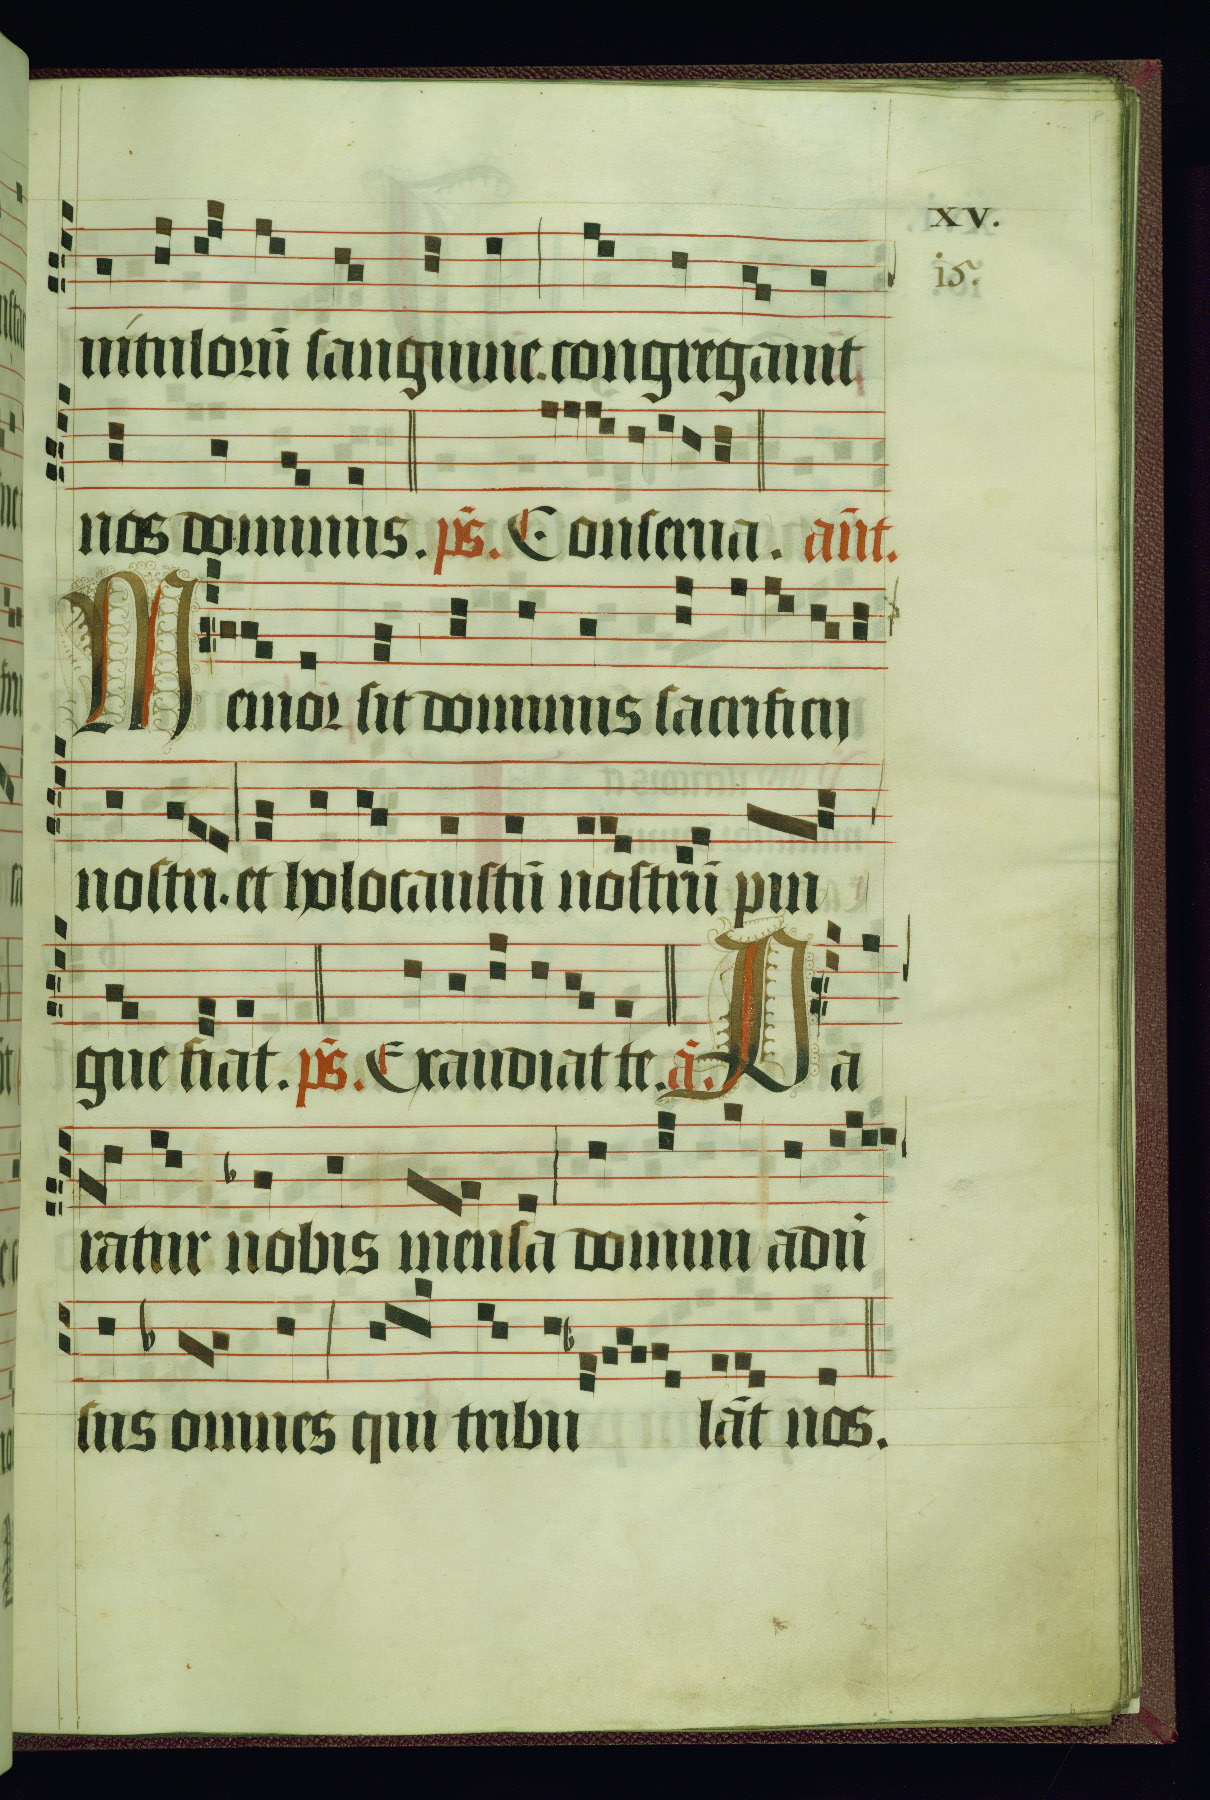 xv.
15.
uítulorū sanguine. congregauit
nos dominus. ps̄. Conserua. an̄t.
Memor sit dominus sacrificij
nostri. et holocaustū nostrū pin
gue fiat. ps̄. Exaudiat te. ā. Pa
ratur nobis mensa domini aduˉ
sus omnes qui tribu lāt nos.